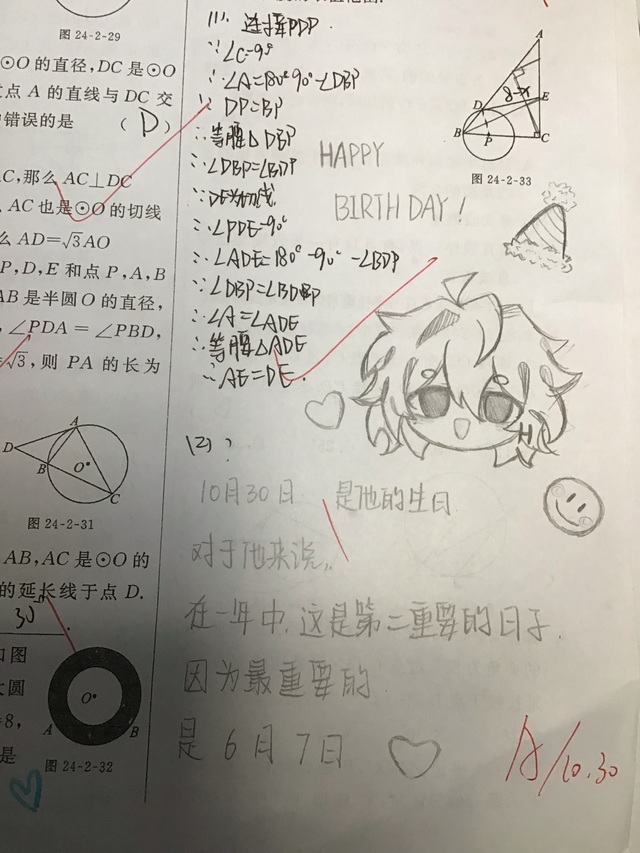 图 24-2-29
⊙O 的直径,DC 是⊙O
点 A 的直线与 DC 交
错误的是 (D)
C,那么 AC⊥DC
AC 也是⊙O 的切线
么 AD=√3AO
P,D,E 和点 P,A,B
AB 是半圆 O 的直径,
∠PDA = ∠PBD,
√3,则 PA 的长为
D
A
B
O
C
图 24-2-31
AB,AC 是⊙O 的
的延长线于点 D.
30°
如图
大圆
=8,
是
O
A
B
图 24-2-32
(1). 连接PDP.
∵∠C=9°
∴∠A=180°90°-∠DBP
∵DP=BP
∴等腰△DBP
∴∠DBP=∠BDP
∵DE为切线
∴∠PDE=90°
∴∠ADE=180°-90°-∠BDP
∵∠DBP=∠BDBP
∴∠A=∠ADE
∴等腰△ADE
∴AE=DE.
A
8-x
D
E
B
P
C
图 24-2-33
HAPPY
BIRTHDAY!
(2)?
10月30日 是他的生日
对于他来说,
在一年中,这是第二重要的日子.
因为最重要的
是6月7日
A/10.30